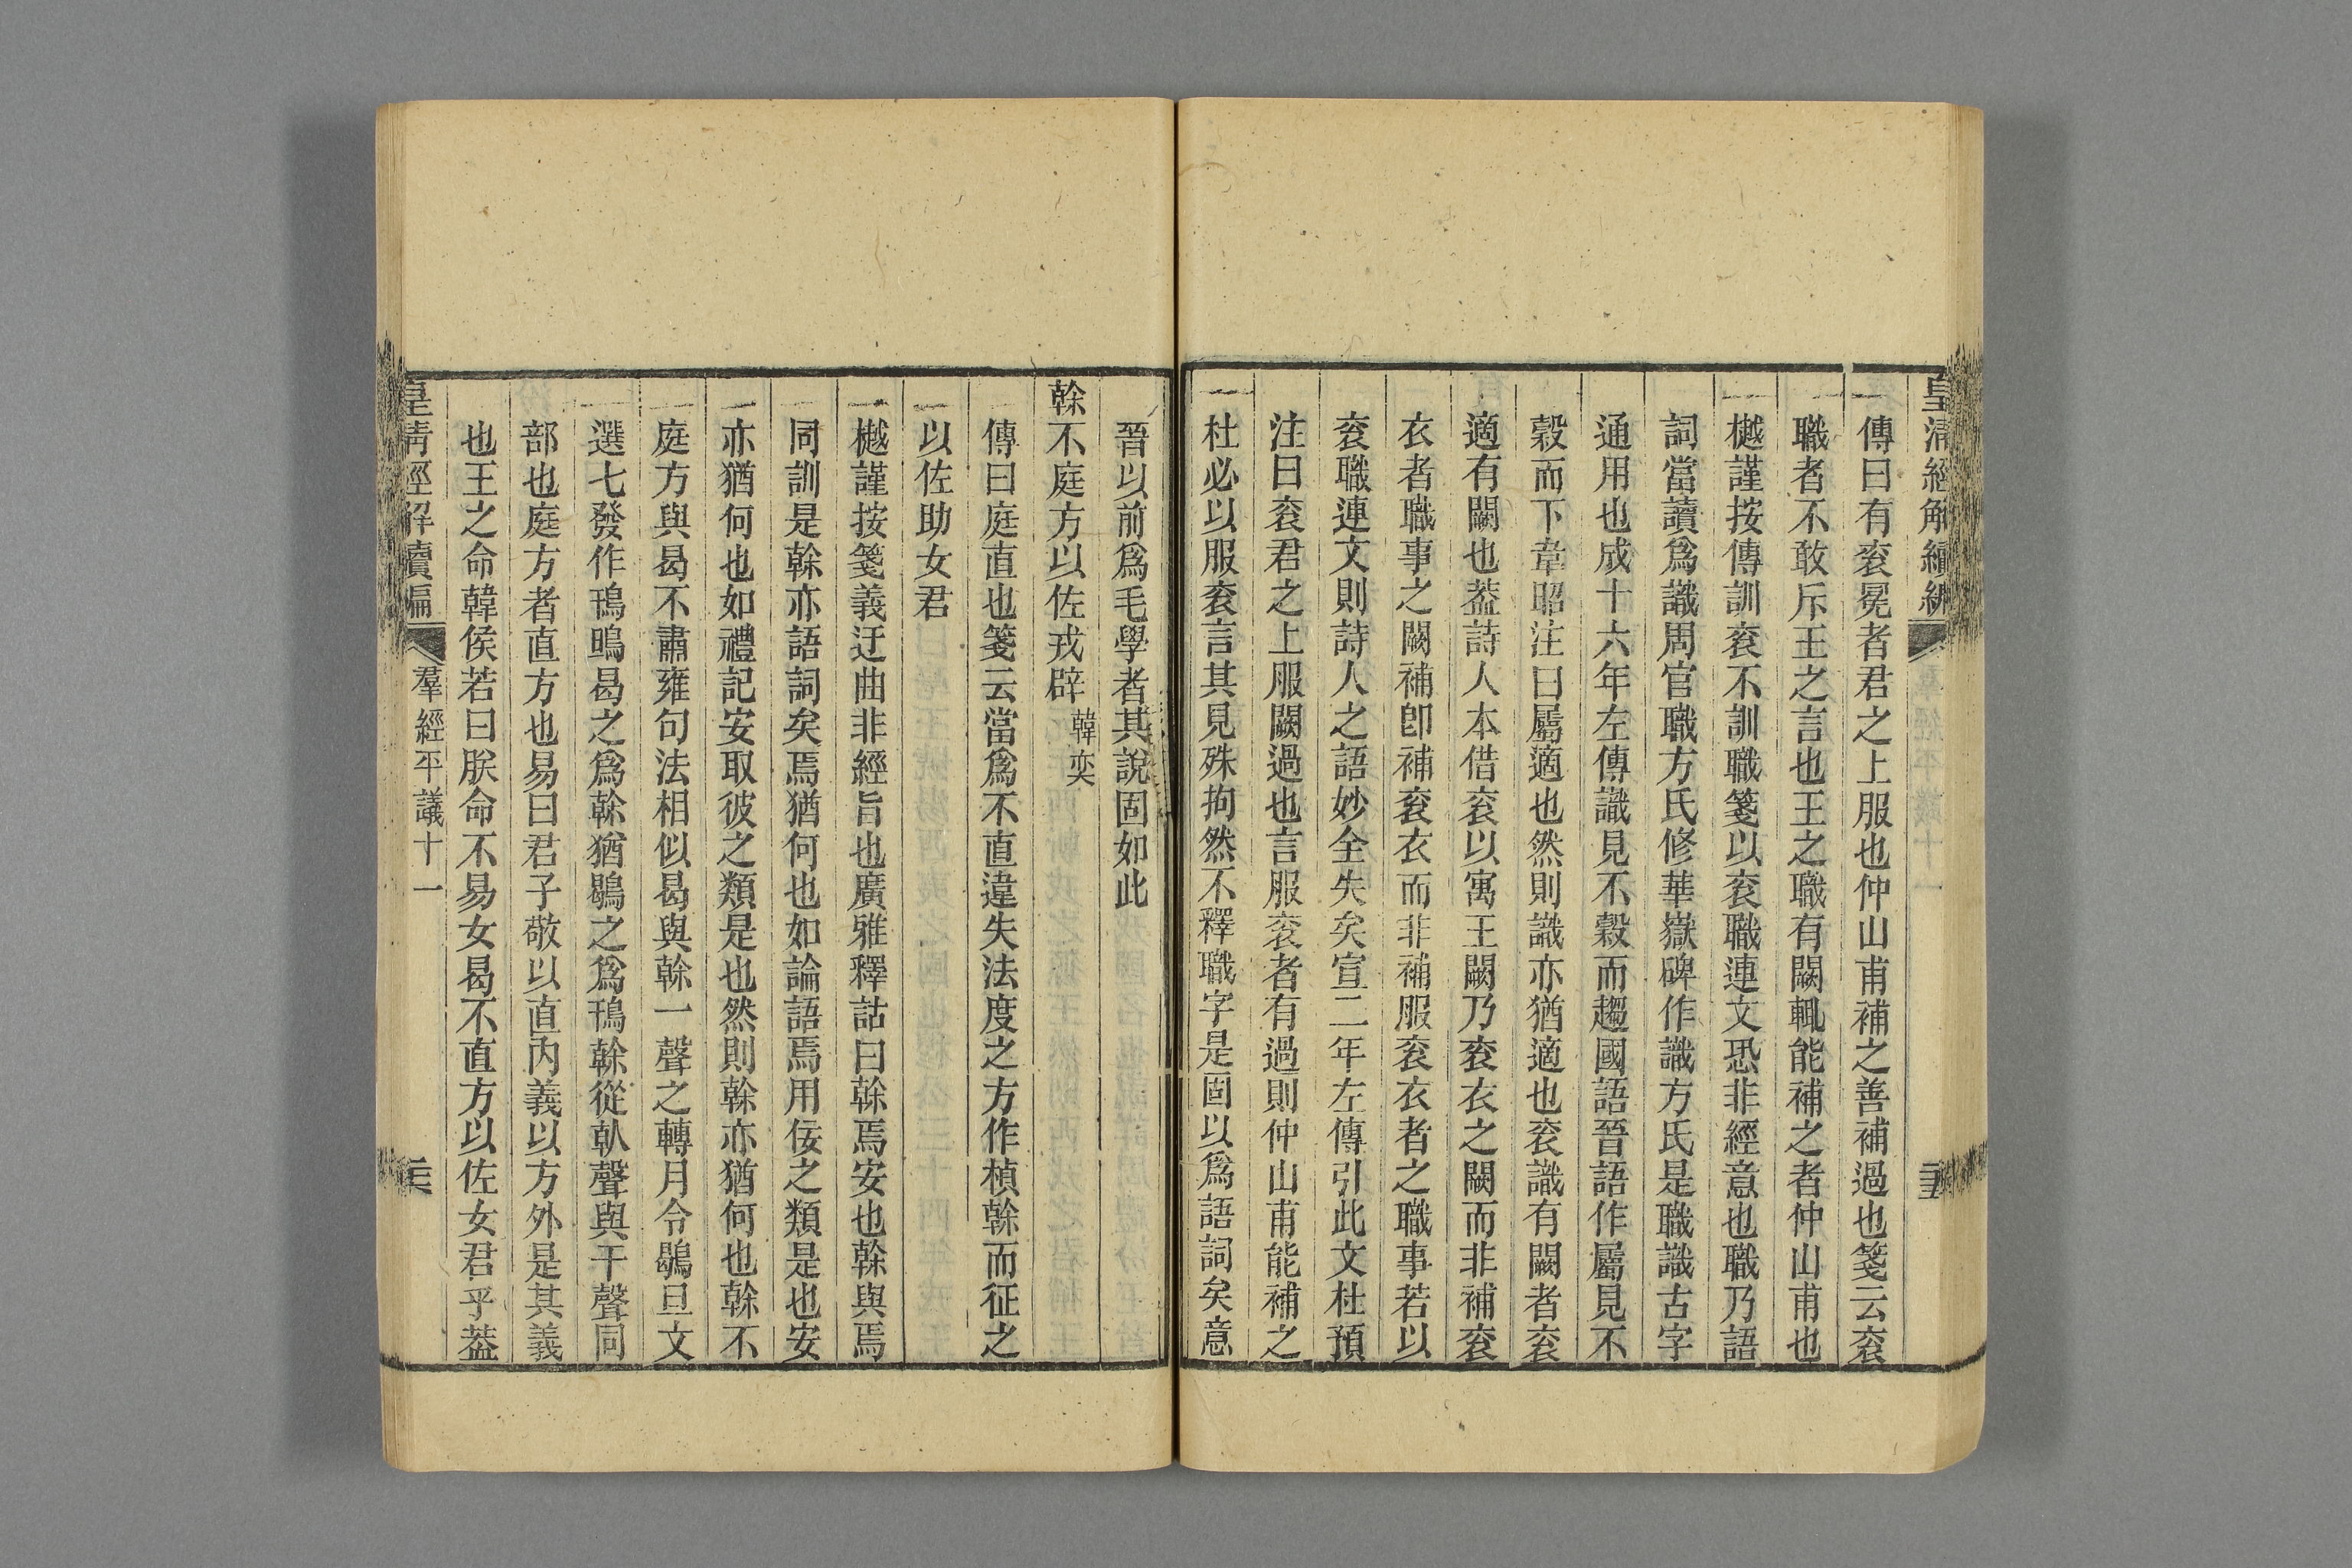 皇清經解續編
傳曰有袞冕者君之上服也仲山甫補之善補過也箋云袞
職者不敢斥王之言也王之職有闕輒能補之者仲山甫也
樾謹按傳訓袞不訓職箋以袞職連文恐非經意也職乃語
詞當讀爲識周官職方氏修華嶽碑作識方氏是職識古字
通用也成十六年左傳識見不穀而趨國語晉語作屬見不
穀而下韋昭注曰屬適也然則識亦猶適也袞識有闕者袞
適有闕也葢詩人本借袞以寓王闕乃袞衣之闕而非補袞
衣者職事之闕補卽補袞衣而非補服袞衣者之職事若以
袞職連文則詩人之語妙全失矣宣二年左傳引此文杜預
注曰袞君之上服闕過也言服袞者有過則仲山甫能補之
杜必以服袞言其見殊拘然不釋職字是固以爲語詞矣意
晉以前爲毛學者其說固如此
榦不庭方以佐戎辟韓奕
傳曰庭直也箋云當爲不直違失法度之方作楨榦而征之
以佐助女君
樾謹按箋義迂曲非經旨也廣雅釋詁曰榦焉安也榦與焉
同訓是榦亦語詞矣焉猶何也如論語焉用佞之類是也安
亦猶何也如禮記安取彼之類是也然則榦亦猶何也榦不
庭方與曷不肅雍句法相似曷與榦一聲之轉月令鶡旦文
選七發作鳱鴠曷之爲榦猶鶡之爲鳱榦從倝聲與干聲同
部也庭方者直方也易曰君子敬以直內義以方外是其義
也王之命韓侯若曰朕命不易女曷不直方以佐女君乎葢
皇淸經解續編 羣經平議十一